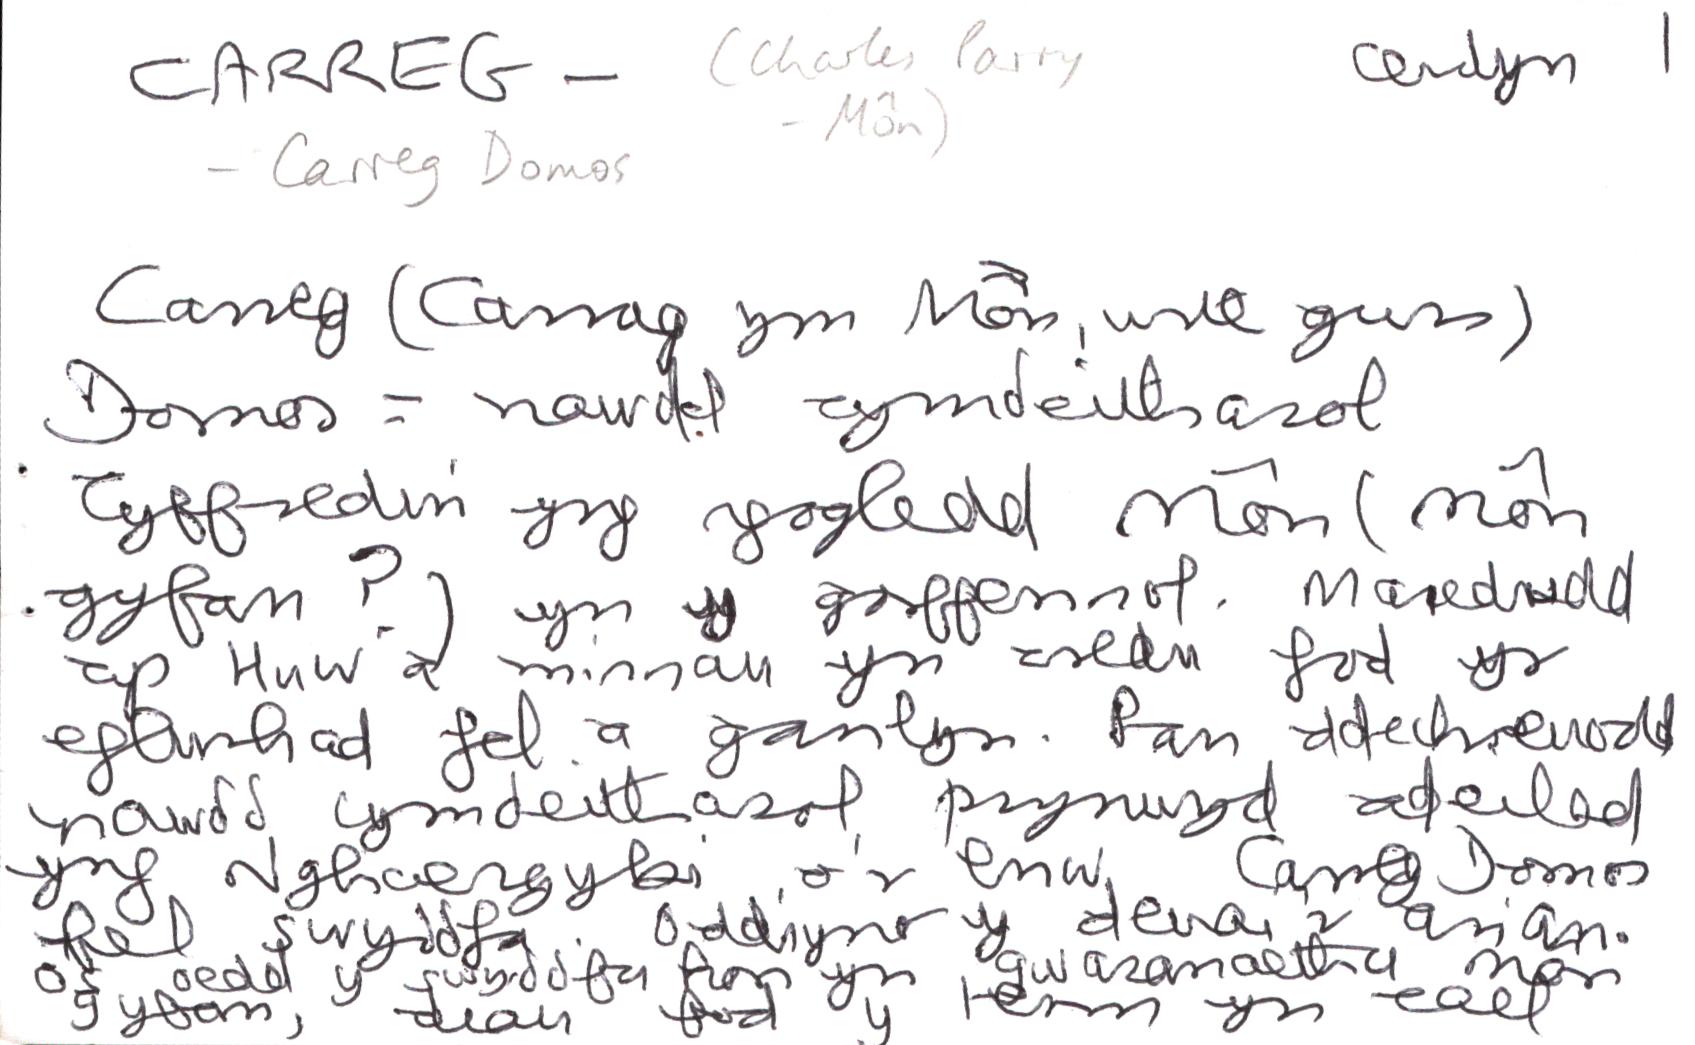 CARREG – (Charles Parry cerdyn 1
- Môn)
- Carreg Domos
Carreg (Carrag ym Môn, wrth gwrs)
Domos = nawdd cymdeithasol
cyffredin yng ngogledd Môn (Môn
gyfan?) yn y gorffennol. Maredudd
ap Huw a minnau yn credu fod yr
eglurhad fel a ganlyn. Pan ddechreuodd
nawdd cymdeithasol, prynwyd adeilad
yng Nghaergybi o'r enw Carreg Domos
fel swyddfa. Oddiyno y deuai'r arian.
Os oedd y swyddfa hon yn gwasanaethu Môn
gyfan, diau fod y term yn cael